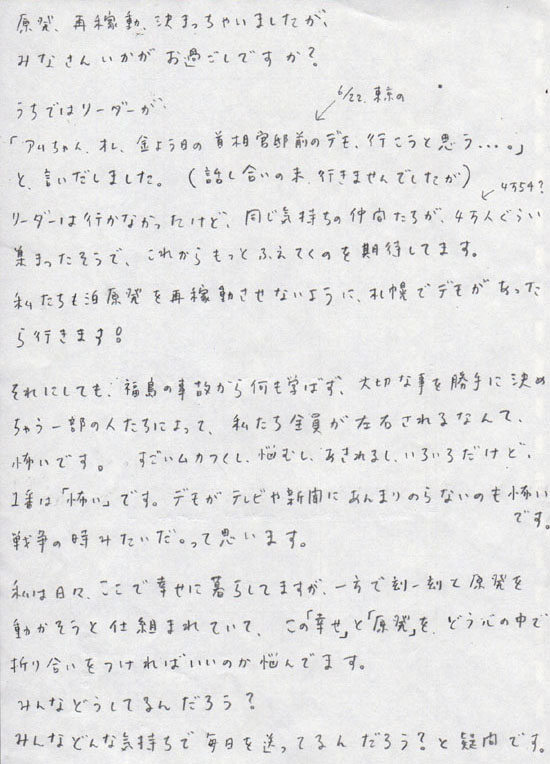 原発、再稼動、決まっちゃいましたが、
みなさんいかがお過ごしですか?
うちではリーダーが、
6/22、東京の
「アリちゃん、オレ、金よう日の首相官邸前のデモ、行こうと思う....。」
と、言いだしました。(話し合いの末、行きませんでしたが)
4万5千?
リーダーは行かなかったけど、同じ気持ちの仲間たちが、4万人ぐらい
集まったそうで、これからもっとふえてくのを期待してます。
私たちも泊原発を再稼動させないように、札幌でデモがあった
ら行きます!
それにしても、福島の事故から何も学ばず、大切な事を勝手に決め
ちゃう一部の人たちによって、私たち全員が左右されるなんて、
怖いです。 すごいムカつくし、悩むし、あきれるし、いろいろだけど、
1番は「怖い」です。デモがテレビや新聞にあんまりのらないのも怖い
です。
戦争の時みたいだ。って思います。
私は日々、ここで幸せに暮らしてますが、一方で刻一刻と原発を
動かそうと仕組まれていて、この「幸せ」と「原発」を、どう心の中で
折り合いをつければいいのか悩んでます。
みんなどうしてるんだろう?
みんなどんな気持ちで毎日を送ってるんだろう?と疑問です。